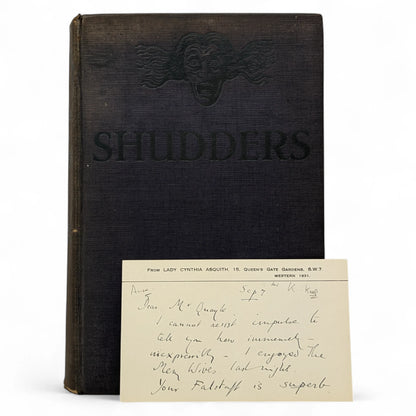 SHUDDERS
FROM LADY CYNTHIA ASQUITH, 15, QUEEN'S GATE GARDENS, S.W.7.
WESTERN 1931.
Sep 7
Dear Mr Quayle
I cannot resist impulse to
tell you how immensely -
inexpressibly - I enjoyed the
Merry Wives last night.
Your Falstaff is superb